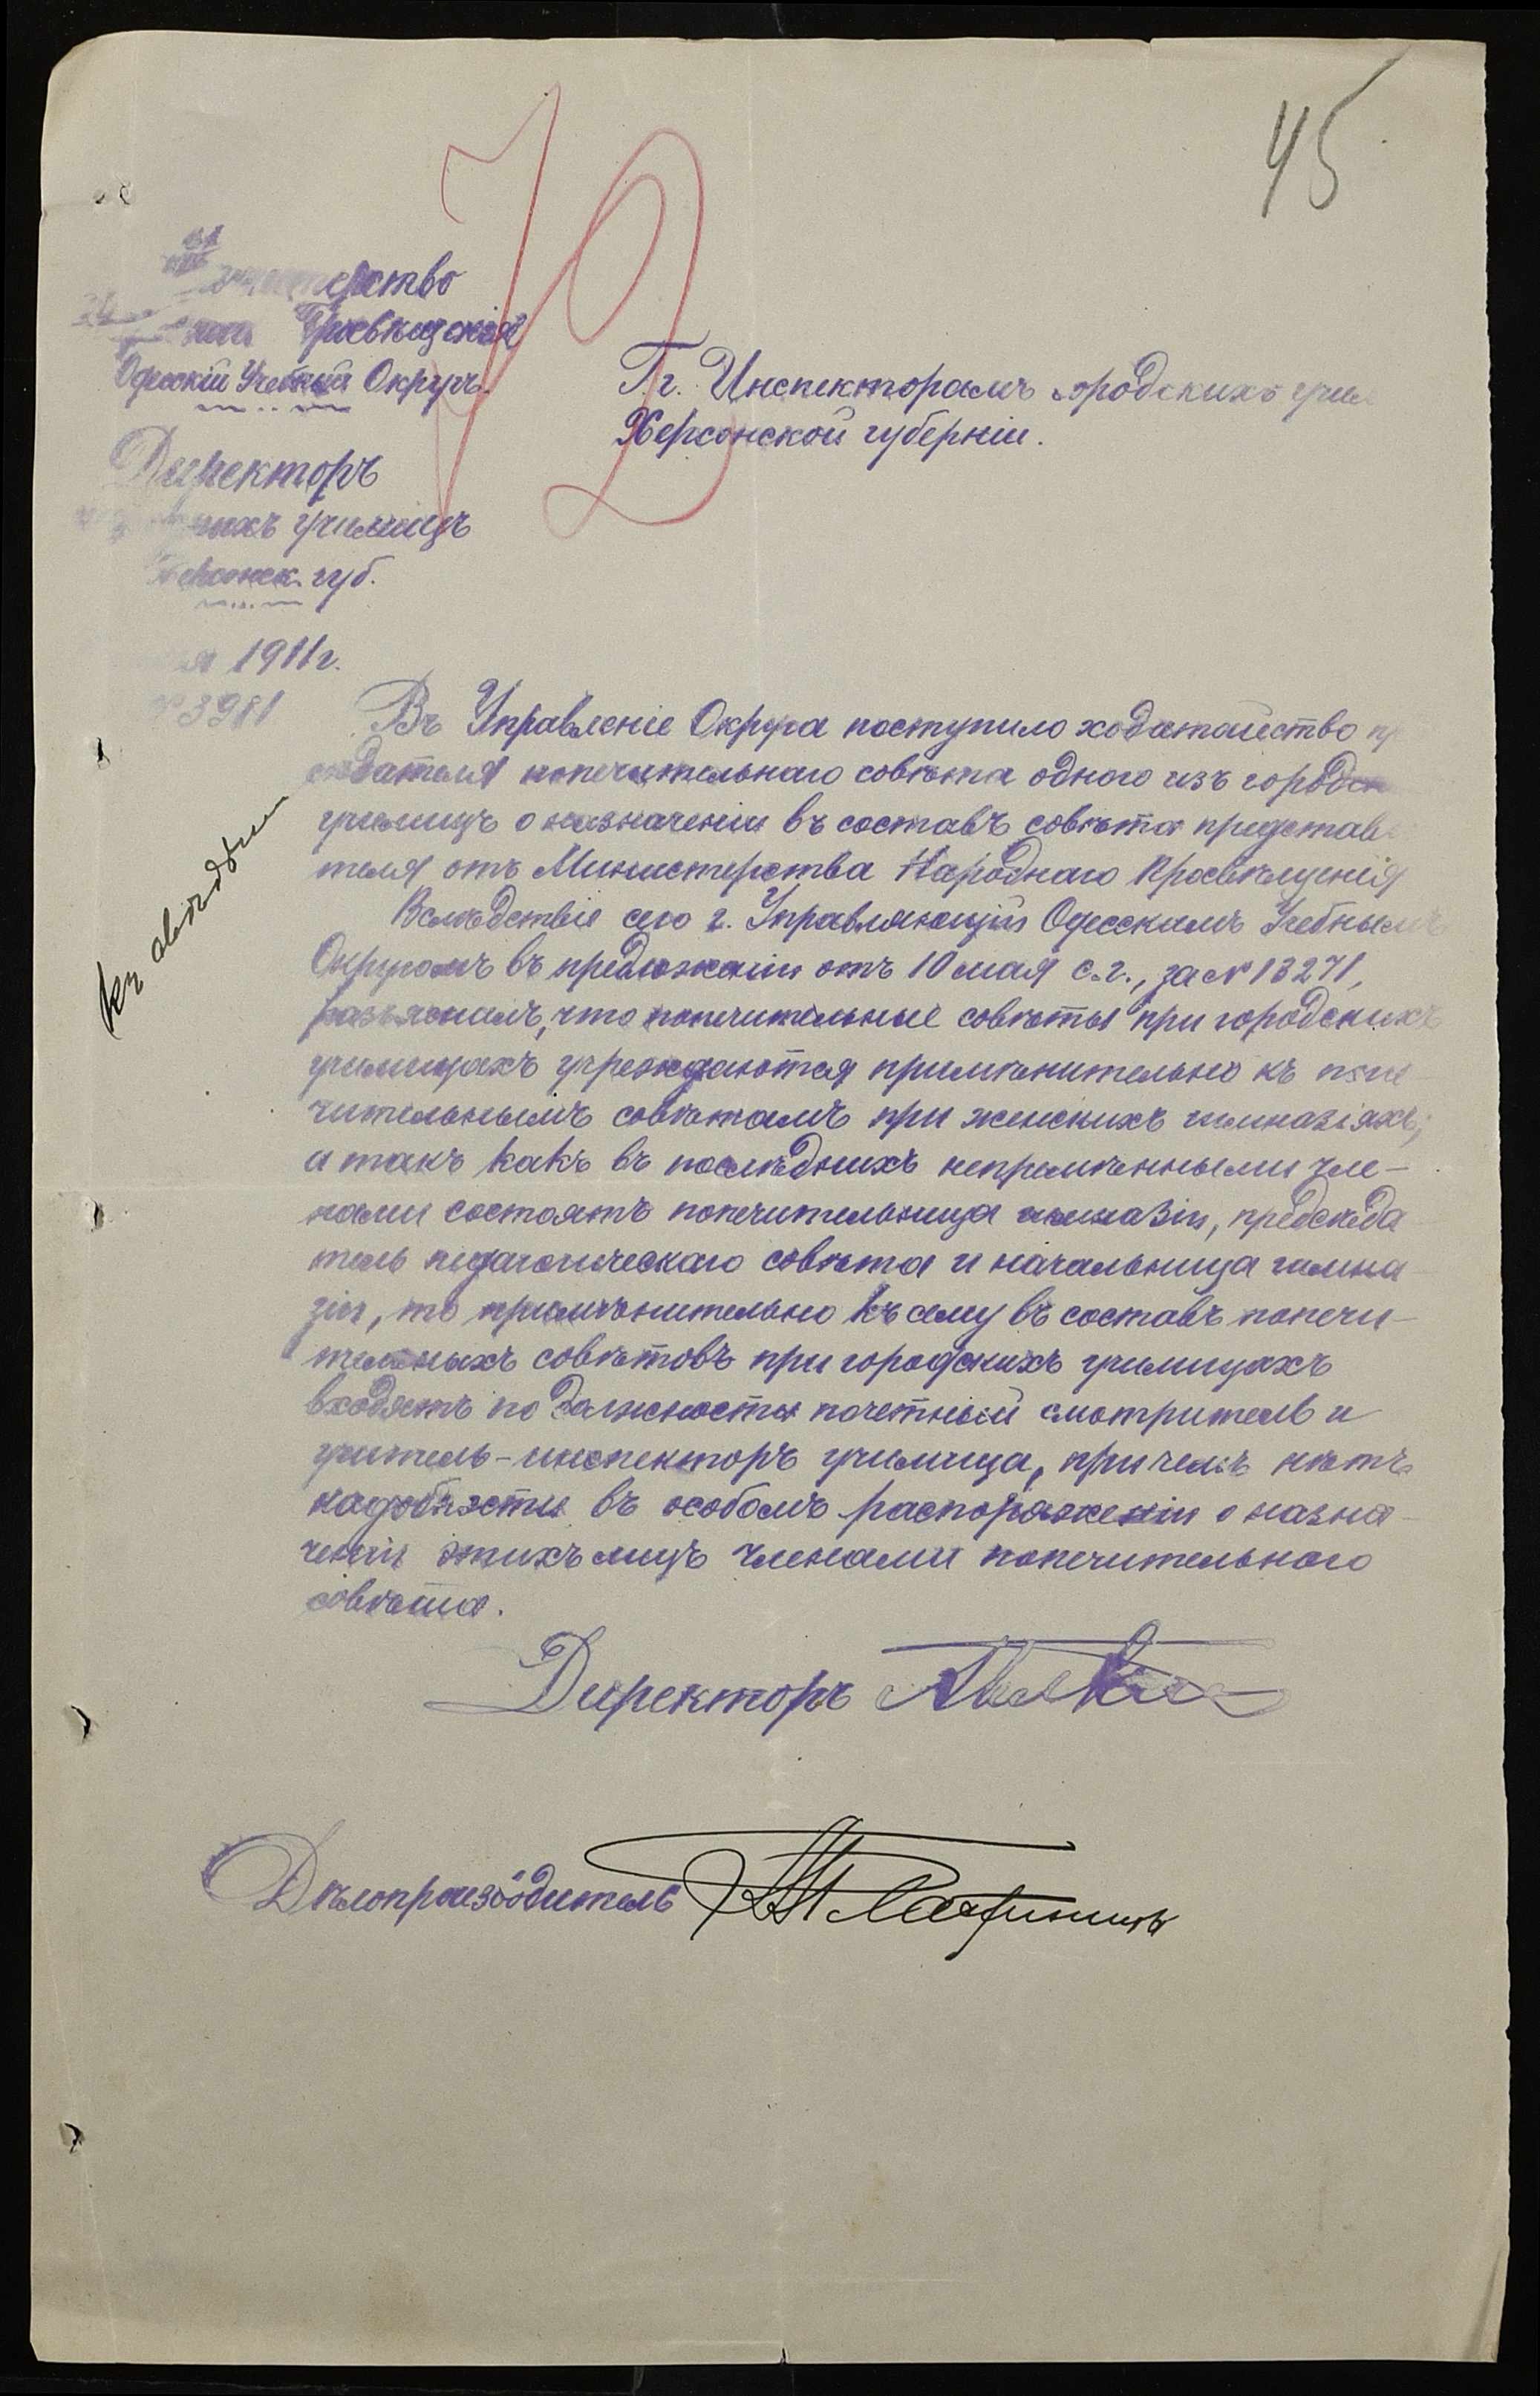 45
Просвѣщенія
Одесскій Учебный Округъ.
Г.г. Инспекторамъ городскихъ учил
Херсонской губерніи.
Директоръ
училищъ
губ.
1911 г.
№ 3981
Въ Управленіе Округа поступило ходатайство
попечительнаго совѣта одного изъ городск
училищъ о назначеніи въ составъ совѣта представи
теля отъ Министерства Народнаго Просвѣщенія
Вслѣдствіе сего г. Управляющій Одесскимъ Учебнымъ
Округомъ въ предложеніи отъ 10 мая с.г., за № 13271,
разъяснилъ, что попечительные совѣты при городскихъ
училищахъ учреждаются примѣнительно къ попе
чительнымъ совѣтамъ при женскихъ гимназіяхъ;
а такъ какъ въ послѣднихъ непремѣнными чле-
нами состоятъ попечительница гимназіи, предсѣда
тель педагогическаго совѣта и начальница гимна
зіи, то примѣнительно къ сему въ составъ попечи-
тельныхъ совѣтовъ при городскихъ училищахъ
входятъ по должности почетный смотритель и
учитель-инспекторъ училища, при чемъ нѣтъ
надобности въ особомъ распоряженіи о назна-
ченіи этихъ лицъ членами попечительнаго
совѣта.
Директоръ
Дѣлопроизводитель